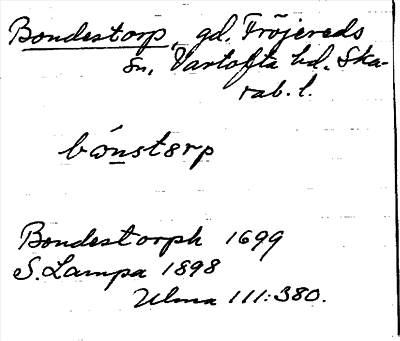 Bondestorp, gd. Fröjereds
sn, Vartofta hd. Ska-
rab. l.
bónstorp
Bondestorph 1699
S. Lampa 1898
Ulma 111:380.